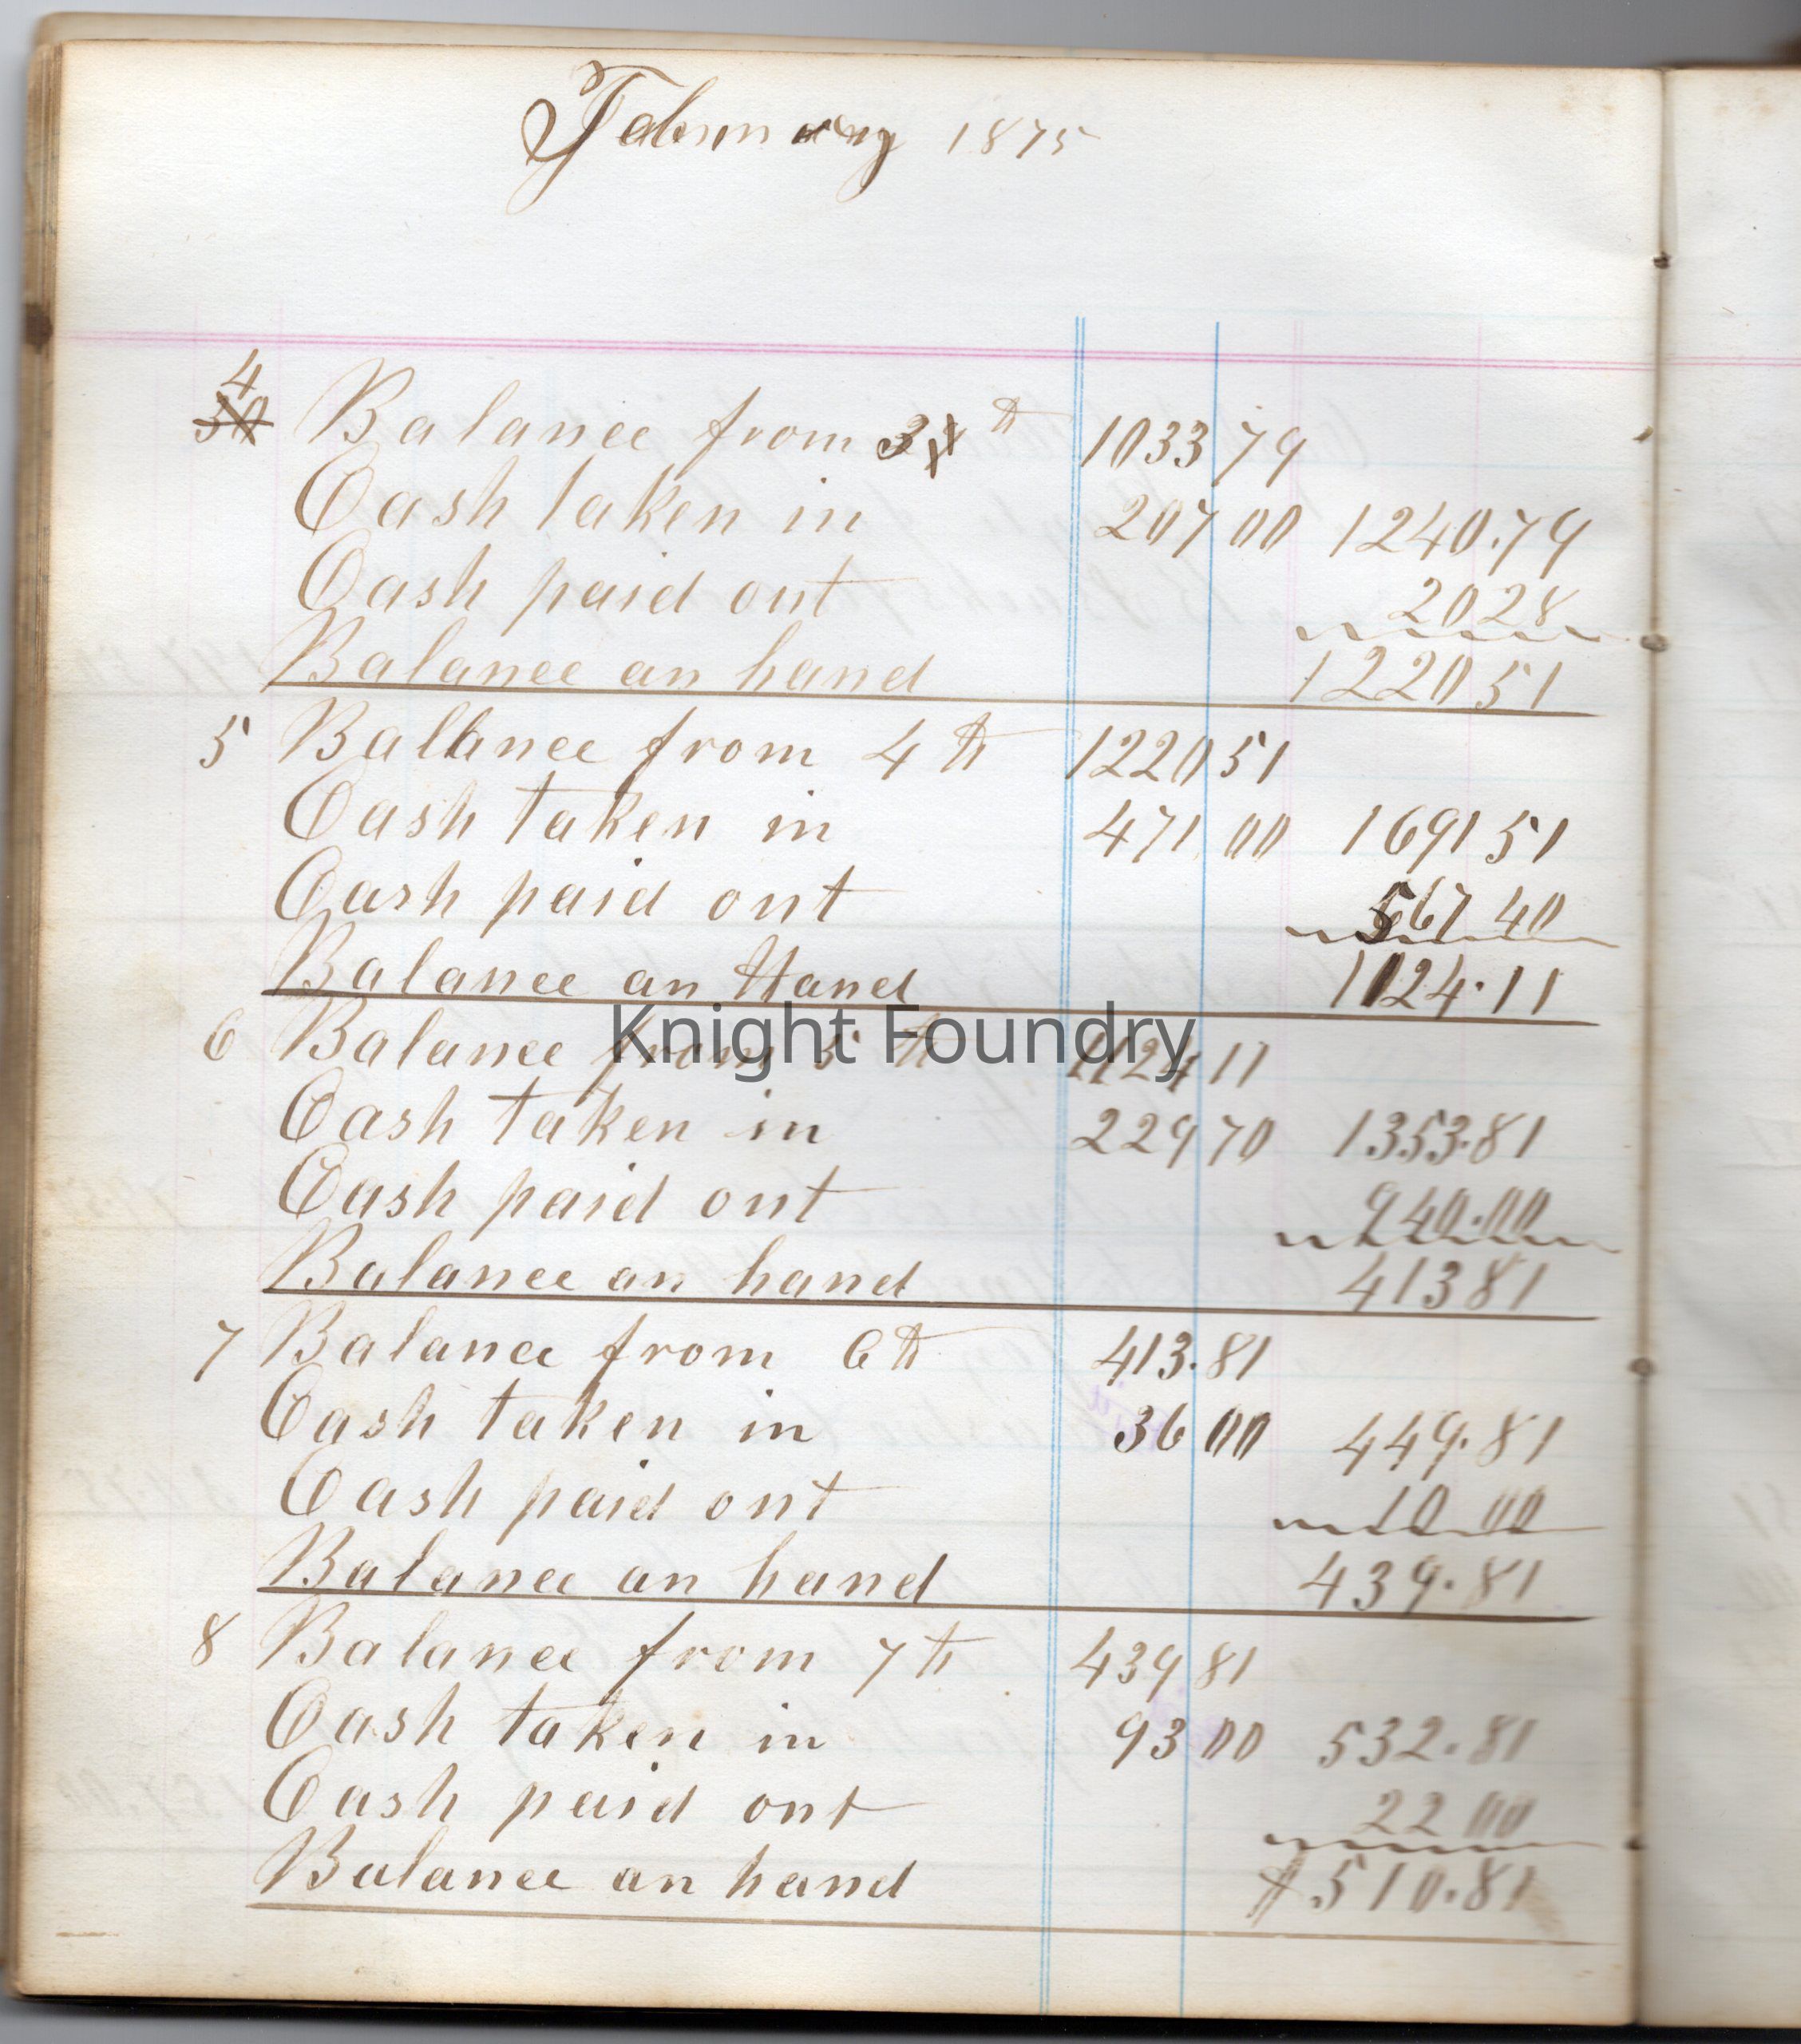 February 1875
4
30 Balance from 3 th 1033 79
Cash taken in 207 00 1240.79
Cash paid out 20 28
Balance an hand 1220 51
5 Ballance from 4 th 1220 51
Cash taken in 471 00 1691 51
Cash paid out 567 40
Balance an Hand 1124.11
Knight Foundry
6 Balance from 5 th 1124 11
Cash taken in 229 70 1353.81
Cash paid out 940.00
Balance an hand 413 81
7 Balance from 6th 413.81
Cash taken in 36 00 449.81
Cash paid out 10 00
Balance an hand 439.81
8 Balance from 7th 439 81
Cash taken in 93 00 532.81
Cash paid out 22 00
Balance an hand $510.81